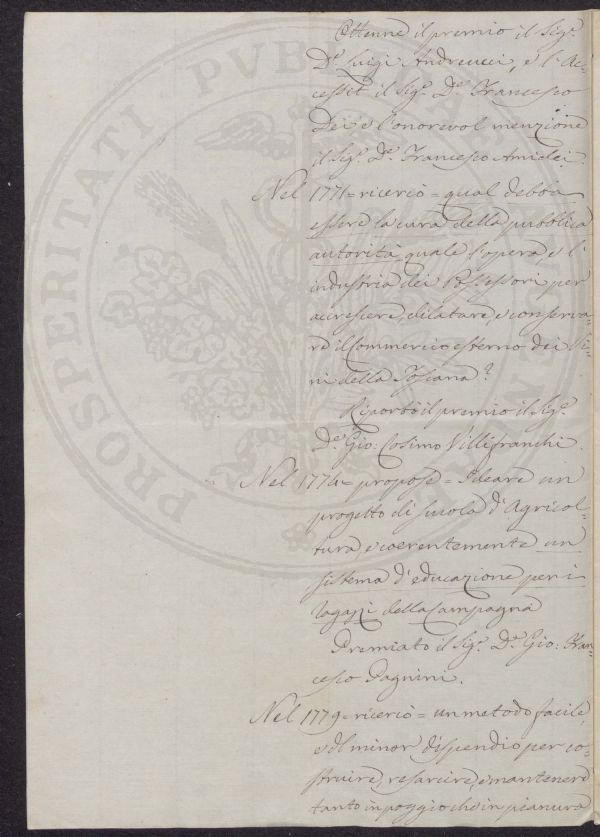 Ottenne il premio il Sig.r
D.r Luigi Andreucci, e l'Ac-
cessit il Sig.r D.r Francesco
Dei e l'onorevol menzione
il Sig.r D.r Francesco Amidei.
Nel 1771 = ricercò = qual debba
essere la cura della pubblica
autorità, quale l'opera, e l'
industria dei Possessori per
accrescere, dilatare, e conserva-
re il Commercio esterno dei Vi-
ni della Toscana?
Riportò il premio il Sig.r
D.r Gio: Cosimo Villifranchi.
Nel 1774 = propose = Ideare un
progetto di scuola d'Agricol-
tura, e coerentemente un
sistema d'educazione per i
ragazzi della Campagna
Premiato il Sig.r D.r Gio: Fran-
cesco Pagnini.
Nel 1779 = ricercò = un metodo facile,
e di minor dispendio per co-
struire, resarcire, e mantenere
tanto in poggio che in pianura
PROSPERITATI PVBLICAE